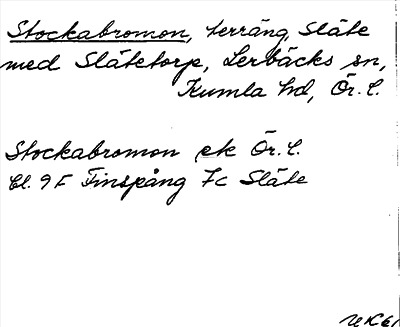 Stockabromon, terräng, Släte
med Slätetorp, Lerbäcks sn,
Kumla hd, Ör. l.
Stockabromon ek Ör. l.
bl. 9 F Finspång 7c Släte